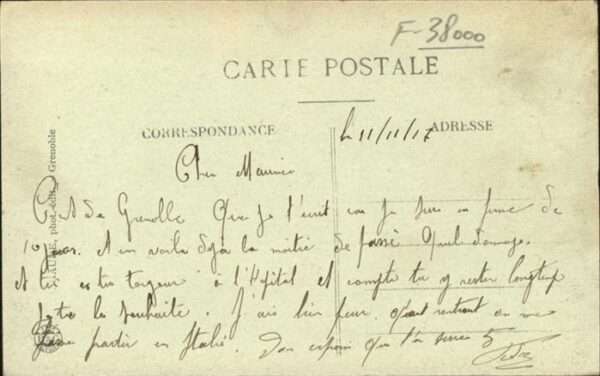 F-38000
CARTE POSTALE
CORRESPONDANCE
ADRESSE
le 11/11/17
Cher Maurice
C'est de Grenoble Que je t'écrit car je suis en perme de
10 jours. et en voila déja la moitie de passé Quel domage
et toi es tu toujour à l'Hopital et compte tu y rester longtemp
je te le souhaite. J'ais bien peur. qu'aut rentrant on me
fasse partir en Italie. Don espoir que t'a serres
phot.-édit., Grenoble